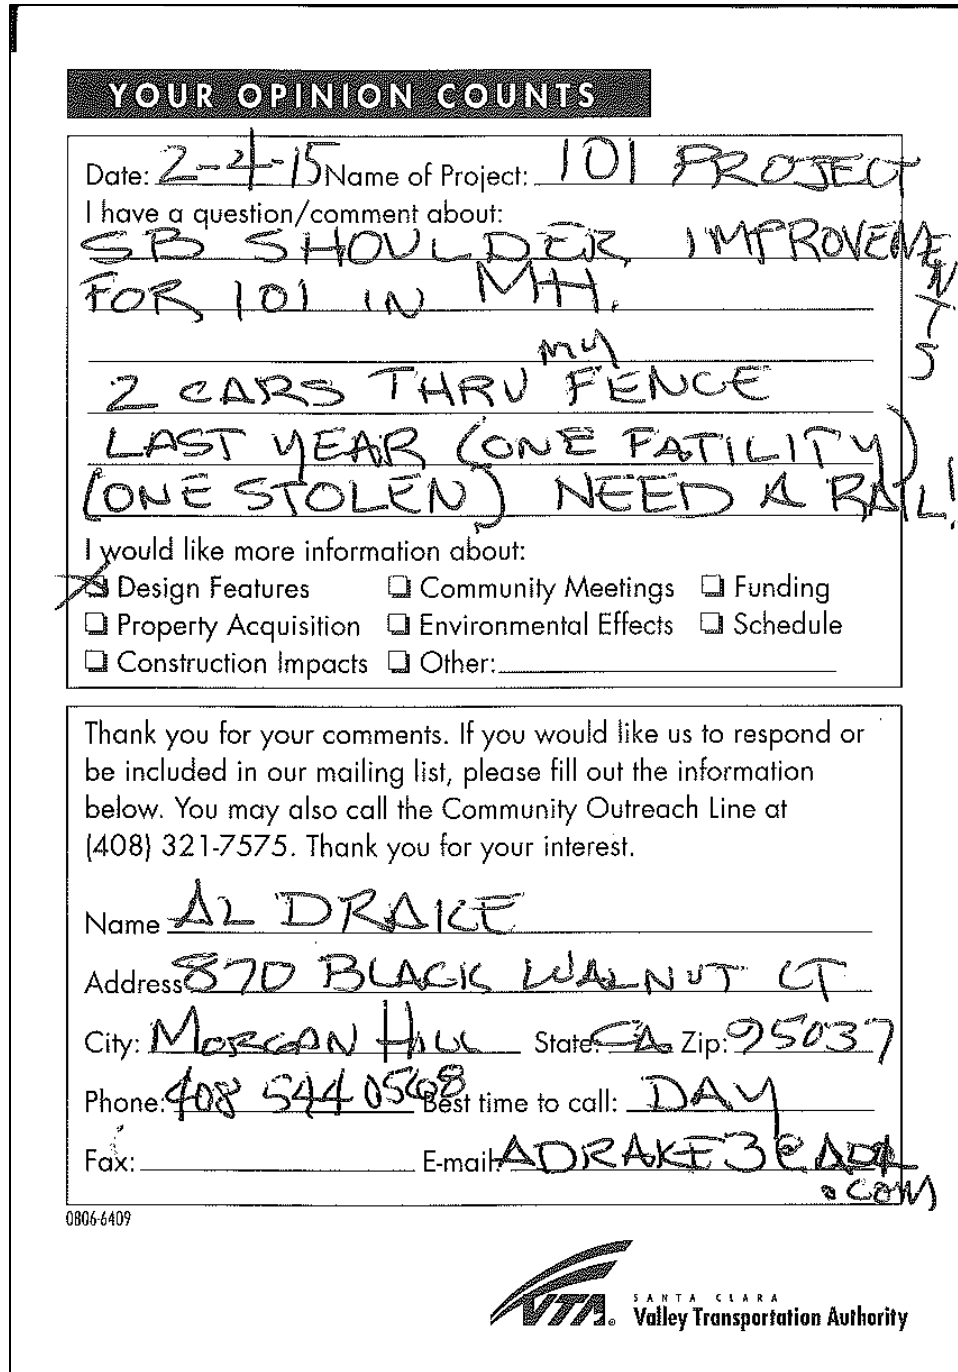 YOUR OPINION COUNTS
Date: 2-4-15 Name of Project: 101 PROJECT
I have a question/comment about:
SB SHOULDER IMPROVEMENTS
FOR 101 IN MH.
my
2 CARS THRU FENCE
LAST YEAR (ONE FATILITY)
(ONE STOLEN) NEED A RAIL!
I would like more information about:
Design Features Community Meetings Funding
Property Acquisition Environmental Effects Schedule
Construction Impacts Other:
Thank you for your comments. If you would like us to respond or
be included in our mailing list, please fill out the information
below. You may also call the Community Outreach Line at
(408) 321-7575. Thank you for your interest.
Name AL DRAKE
Address 870 BLACK WALNUT CT
City: MORGAN HILL State: CA. Zip: 95037
Phone: 408 544 0568 Best time to call: DAY
Fax: E-mail: ADRAKE3@AOL
.COM
0806-6409
VTA
SANTA CLARA
Valley Transportation Authority